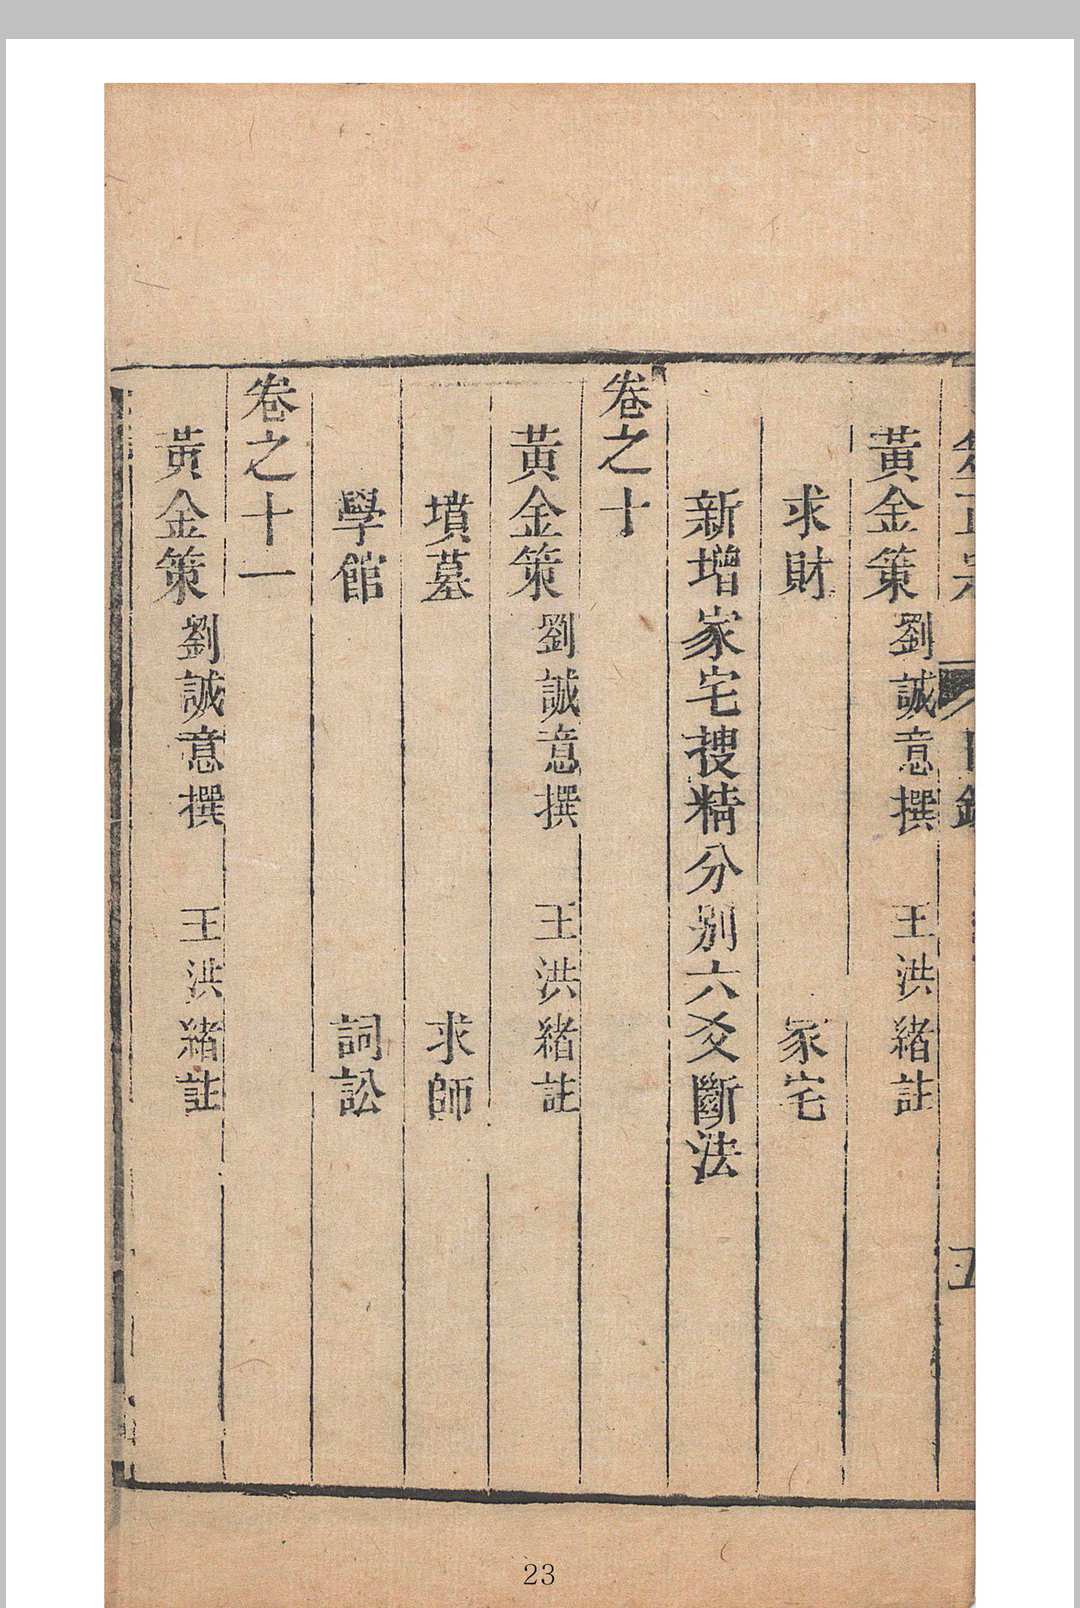 黃金策 劉誠意撰 王洪緒註
求財 家宅
新增家宅搜精分别六爻斷法
卷之十
黃金策 劉誠意撰 王洪緒註
墳墓 求師
學館 詞訟
卷之十一
黃金策 劉誠意撰 王洪緒註
23